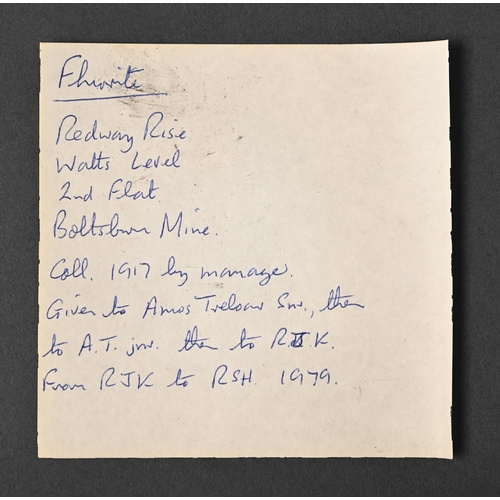 Fluorite
Redway Rise
Watts Level
2nd Flat.
Boltsburn Mine.
Coll. 1917 by manage.
Given to Amos Treloar Snr., then
to A.T. jnr. then to RJK.
From RJK to RSH. 1979.